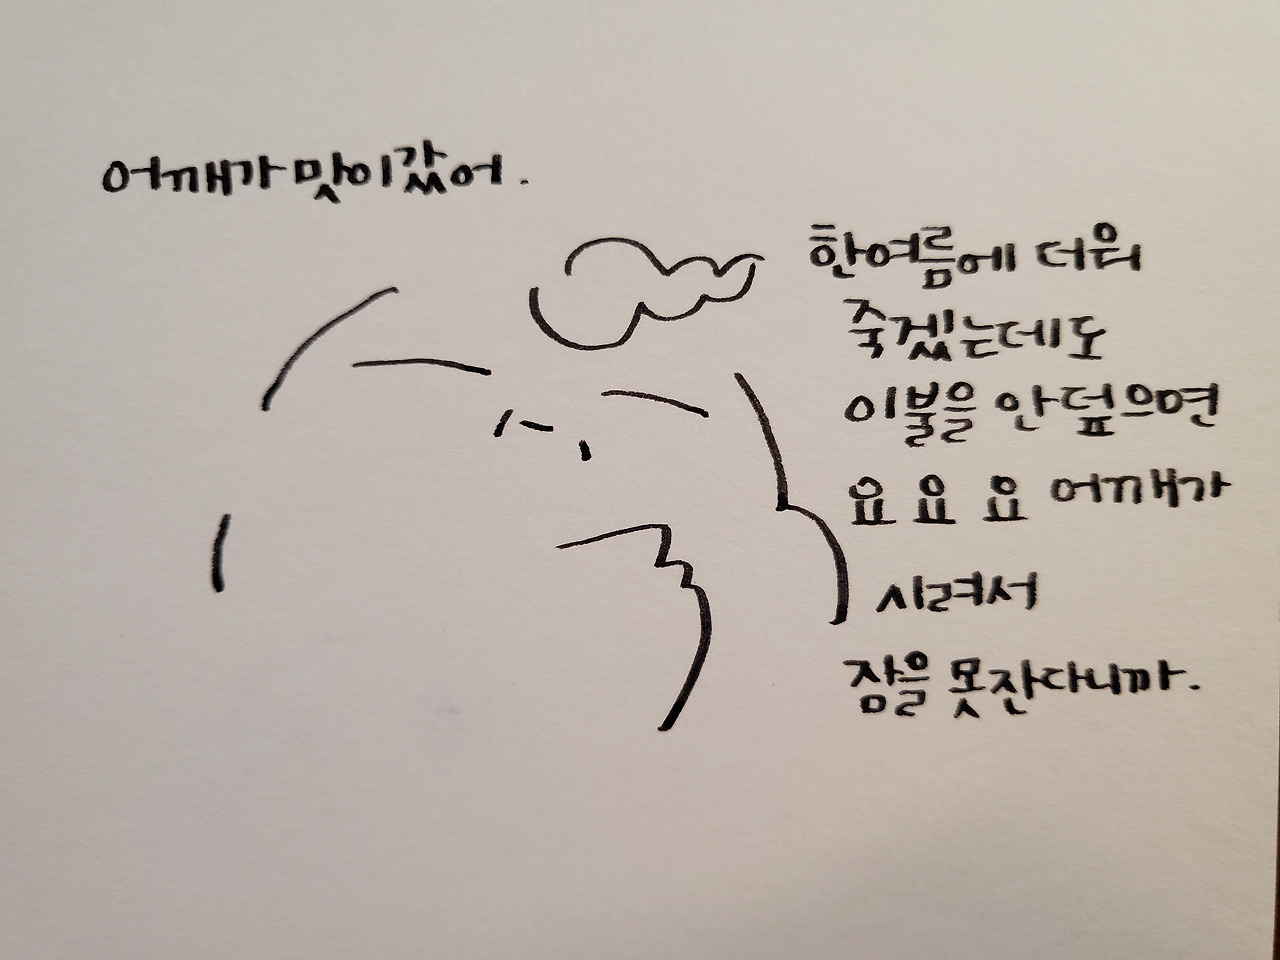 어깨가 맛이갔어.
한여름에 더워
죽겠는데도
이불을 안덮으면
요 요 요 어깨가
시려서
잠을 못잔다니까.